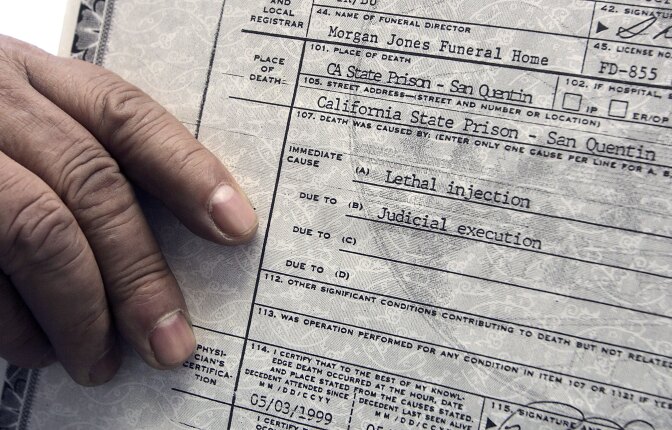 AND
LOCAL
REGISTRAR
44. NAME OF FUNERAL DIRECTOR
Morgan Jones Funeral Home
42. SIGNAT
45. LICENSE NO.
FD-855
PLACE
OF
DEATH
101. PLACE OF DEATH
CA State Prison - San Quentin
102. IF HOSPITAL, S
IP
ER/OP
105. STREET ADDRESS—(STREET AND NUMBER OR LOCATION)
California State Prison - San Quentin
107. DEATH WAS CAUSED BY: (ENTER ONLY ONE CAUSE PER LINE FOR A, B,
IMMEDIATE
CAUSE
(A) Lethal injection
DUE TO (B) Judicial execution
DUE TO (C)
DUE TO (D)
112. OTHER SIGNIFICANT CONDITIONS CONTRIBUTING TO DEATH BUT NOT RELATE
113. WAS OPERATION PERFORMED FOR ANY CONDITION IN ITEM 107 OR 112? IF YES
PHYSI-
CIAN'S
CERTIFICA-
TION
114. I CERTIFY THAT TO THE BEST OF MY KNOWL-
EDGE DEATH OCCURRED AT THE HOUR, DATE
AND PLACE STATED FROM THE CAUSES STATED.
DECEDENT ATTENDED SINCE
MM/DD/CCYY
05/03/1999
DECEDENT LAST SEEN ALIVE
MM/DD/CCYY
05
115. SIGNATURE AND
I CERTIFY